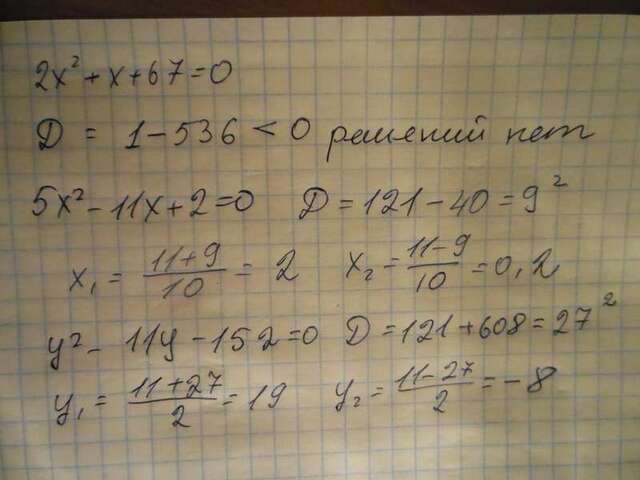 2x²+x+67=0
D = 1-536<0 решений нет
5x²-11x+2=0 D=121-40=9²
x₁ = (11+9)/10 = 2 x₂ = (11-9)/10 = 0,2
y²-11y-152=0 D=121+608=27²
y₁ = (11+27)/2 = 19 y₂ = (11-27)/2 = -8